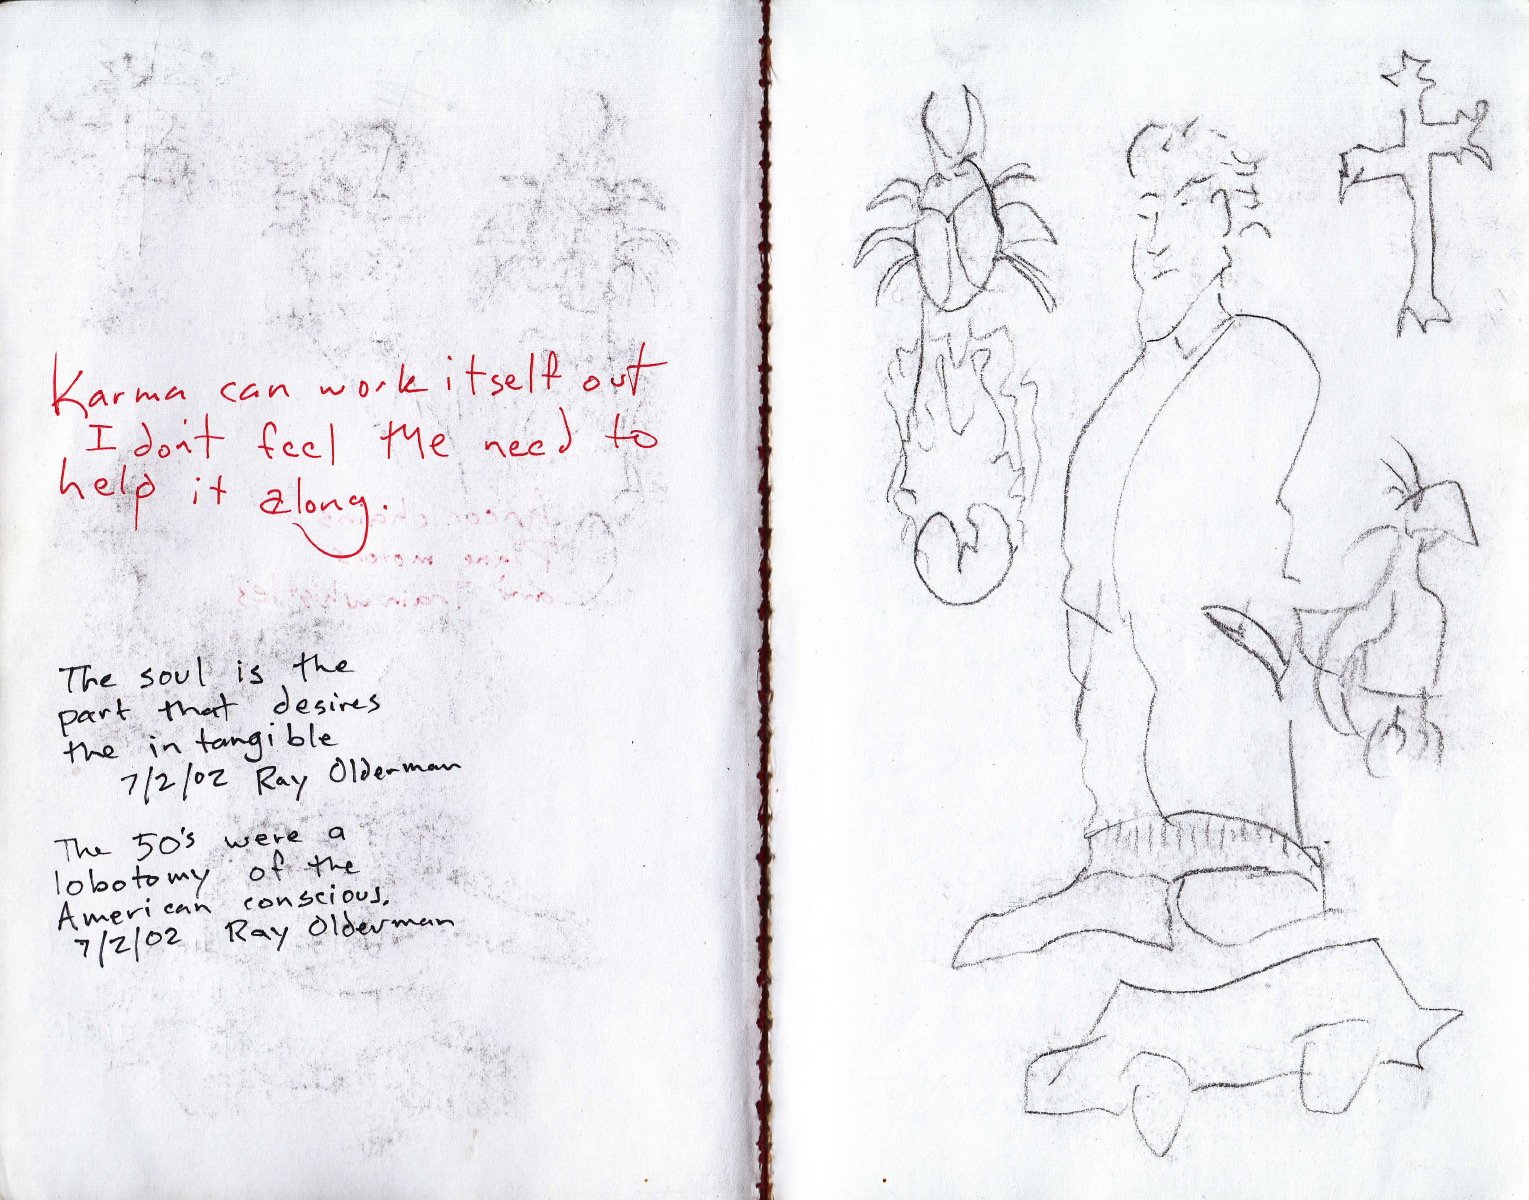 Karma can work itself out
I don't feel the need to
help it along.
and Train whistles
The soul is the
part that desires
the intangible
7/2/02 Ray Olderman
The 50's were a
lobotomy of the
American conscious.
7/2/02 Ray Olderman